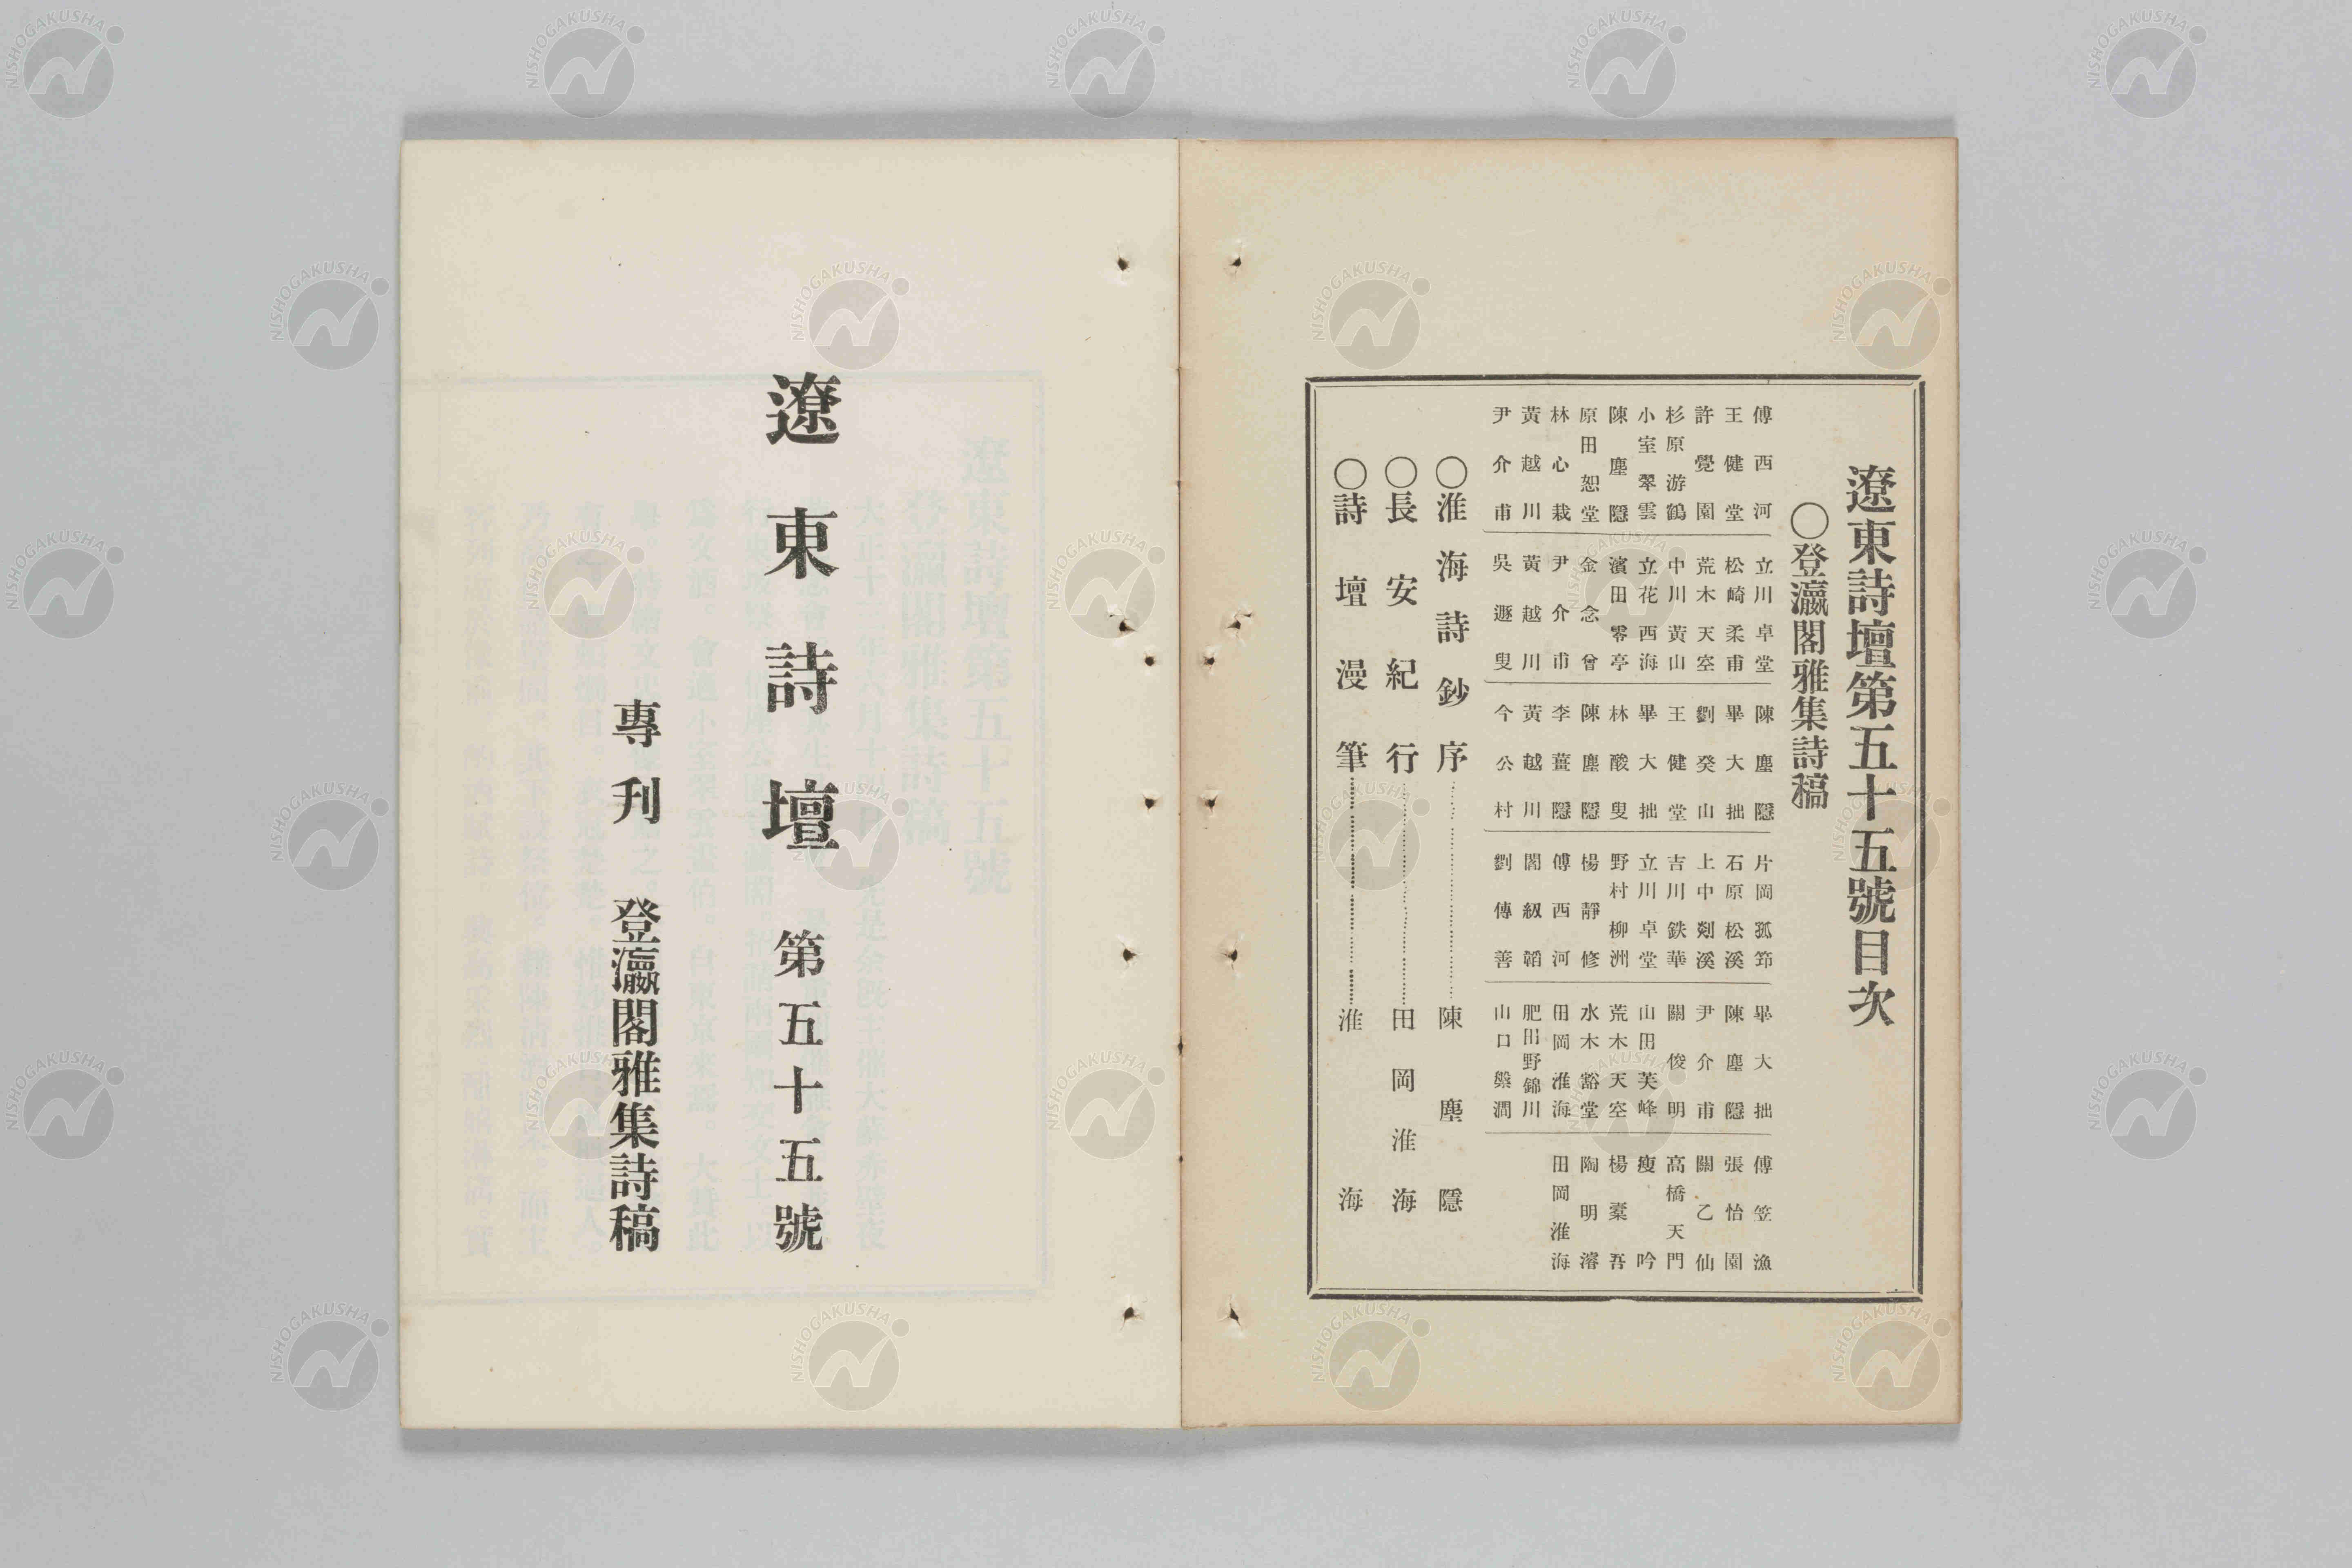 遼東詩壇第五十五號目次
〇登瀛閣雅集詩稿
傅西河
王健堂
許覺園
杉原游鶴
小室翠雲
陳塵隱
原田恕堂
林心栽
黃越川
尹介甫
立川卓堂
松崎柔甫
荒木天空
中川黃山
立花西海
濱田零亭
金念曾
尹介甫
黃越川
吳遯叟
陳塵隱
畢大拙
劉癸山
王健堂
畢大拙
林酸叟
陳塵隱
李薑隱
黃越川
今公村
片岡孤筇
石原松溪
上中剡溪
吉川鉄華
立川卓堂
野村柳洲
楊靜修
傅西河
閻級韜
劉傳善
畢大拙
陳塵隱
尹介甫
關俊明
山田芙峰
荒木天空
水木豁堂
田岡淮海
肥田野錦川
山口槃澗
傅笠漁
張怡園
關乙仙
高橋天門
瘦吟
楊橐吾
陶明濬
田岡淮海
〇淮海詩鈔序…………陳塵隱
〇長安紀行…………田岡淮海
〇詩壇漫筆…………淮海
遼東詩壇 第五十五號
專刊 登瀛閣雅集詩稿
NISHOGAKUSHA